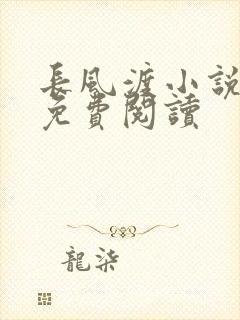 長風渡小說
免費閱讀
龍柒